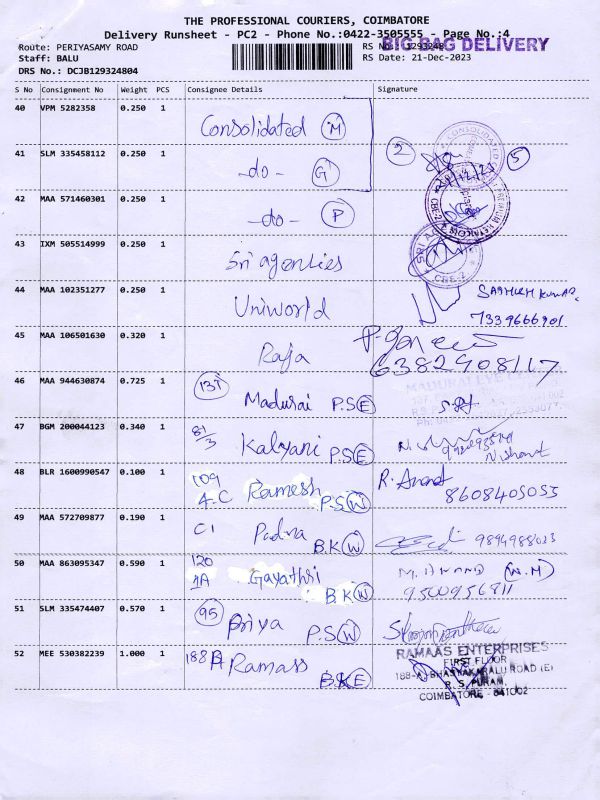 THE PROFESSIONAL COURIERS, COIMBATORE
Delivery Runsheet - PC2 - Phone No.:0422-3505555 - Page No.:4
Route: PERIYASAMY ROAD
RS No.: 1293248
BIG BAG DELIVERY
Staff: BALU
RS Date: 21-Dec-2023
DRS No.: DCJB129324804
S No Consignment No Weight PCS Consignee Details Signature
40 VPM 5282358 0.250 1 Consolidated M
41 SLM 335458112 0.250 1 -do- G 2 5
42 MAA 571460301 0.250 1 -do- P
43 IXM 505514999 0.250 1 Sri agencies
CBE-2
44 MAA 102351277 0.250 1 Uniworld
7339666901
45 MAA 106501630 0.320 1 Raja
6382908117
46 MAA 944630874 0.725 1 137 Madurai P.S E
47 BGM 200044123 0.340 1 81/3 Kalyani P.S E
Nishant
48 BLR 1600990547 0.100 1 109 4-C Ramesh P.S W R. Anand
8608405053
49 MAA 572709877 0.190 1 C1 Padma B.K W
50 MAA 863095347 0.590 1 120 1A Gayathri B K W
9500956811
51 SLM 335474407 0.570 1 95 Priya P.S W
52 MEE 530382239 1.000 1 188 A Ramass B.K E
RAMAAS ENTERPRISES
FIRST FLOOR
188-A, BHASYAKARALU ROAD (E)
R. S. PURAM,
COIMBATORE - 641002